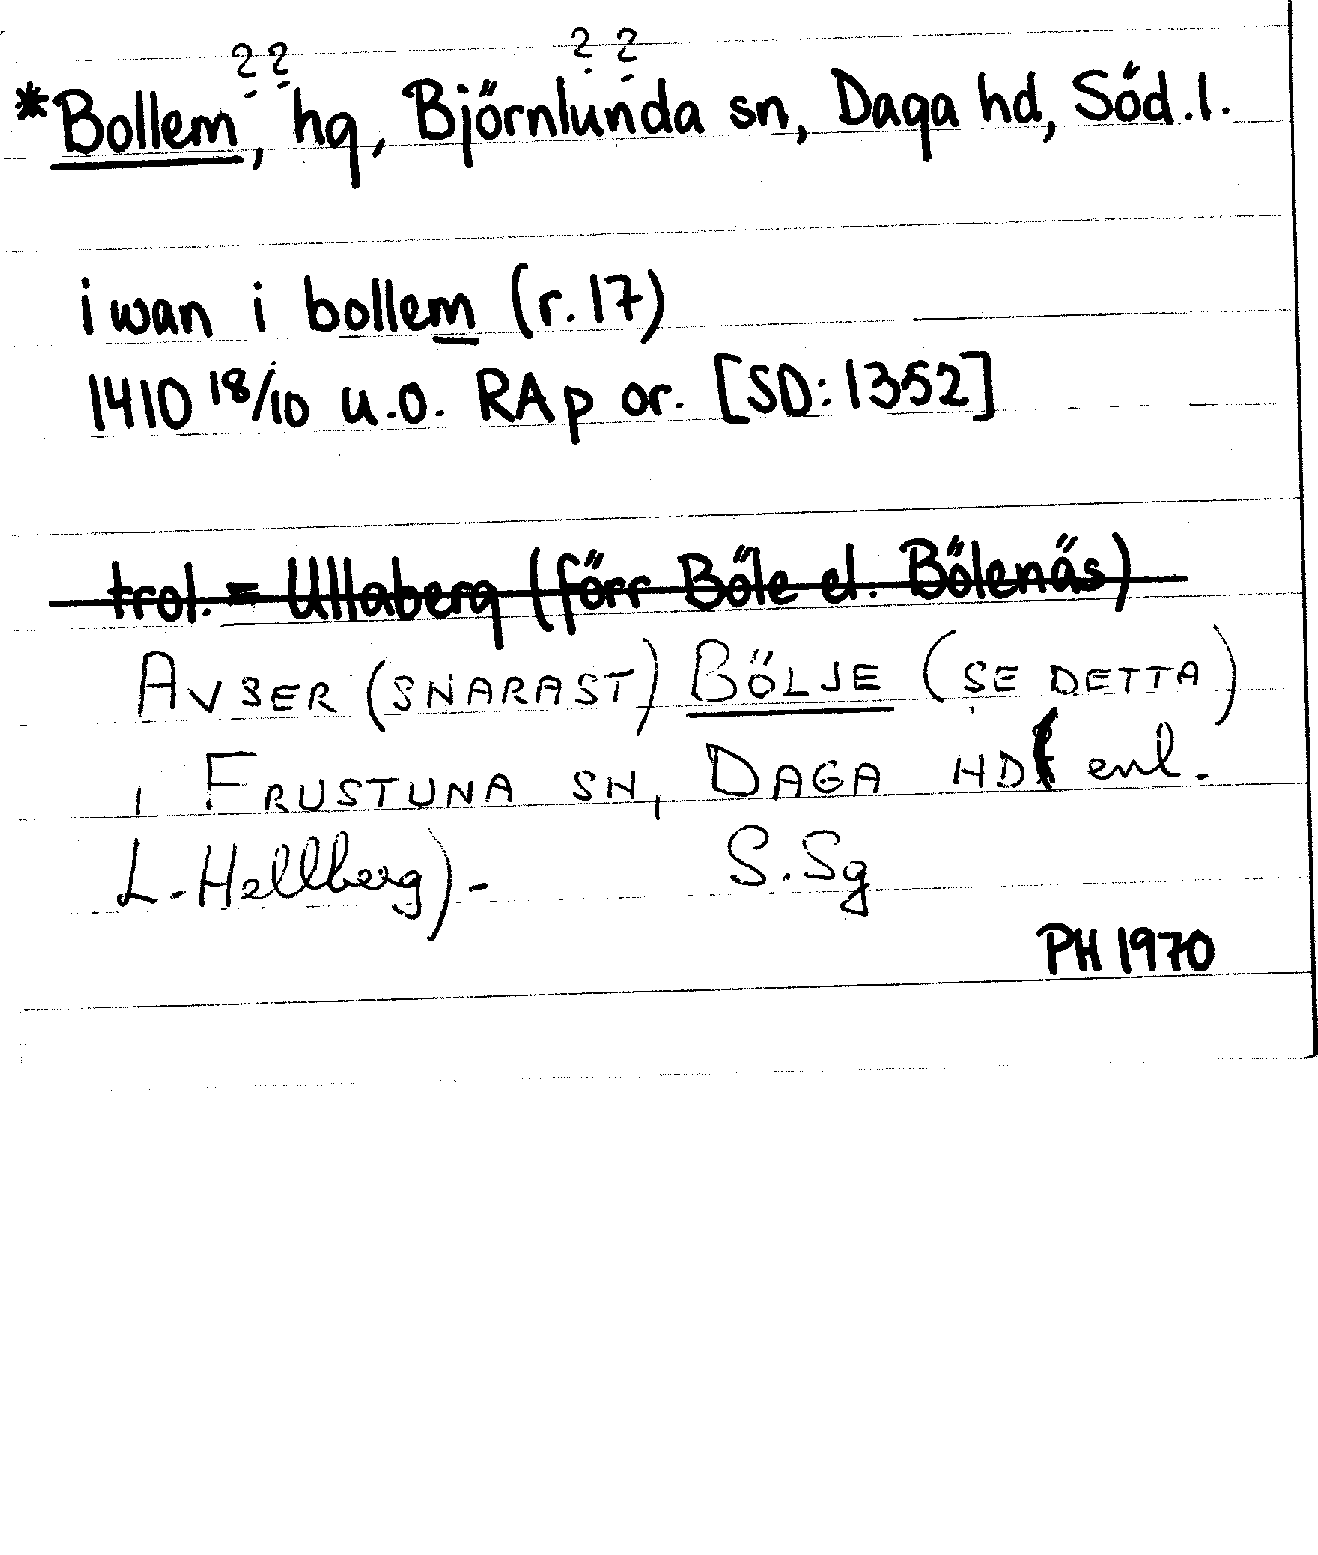 ? ? ? ?
*Bollem, hg, Björnlunda sn, Daga hd, Söd.l.
iwan i bollem (r.17)
1410 18/10 u.o. RAp or. [SD:1352]
trol. = Ullaberg (förr Böle el. Bölenäs)
AVSER (SNARAST) BÖLJE (SE DETTA)
I FRUSTUNA SN, DAGA HD (enl.
L. Hellberg).- S.Sg
PH 1970